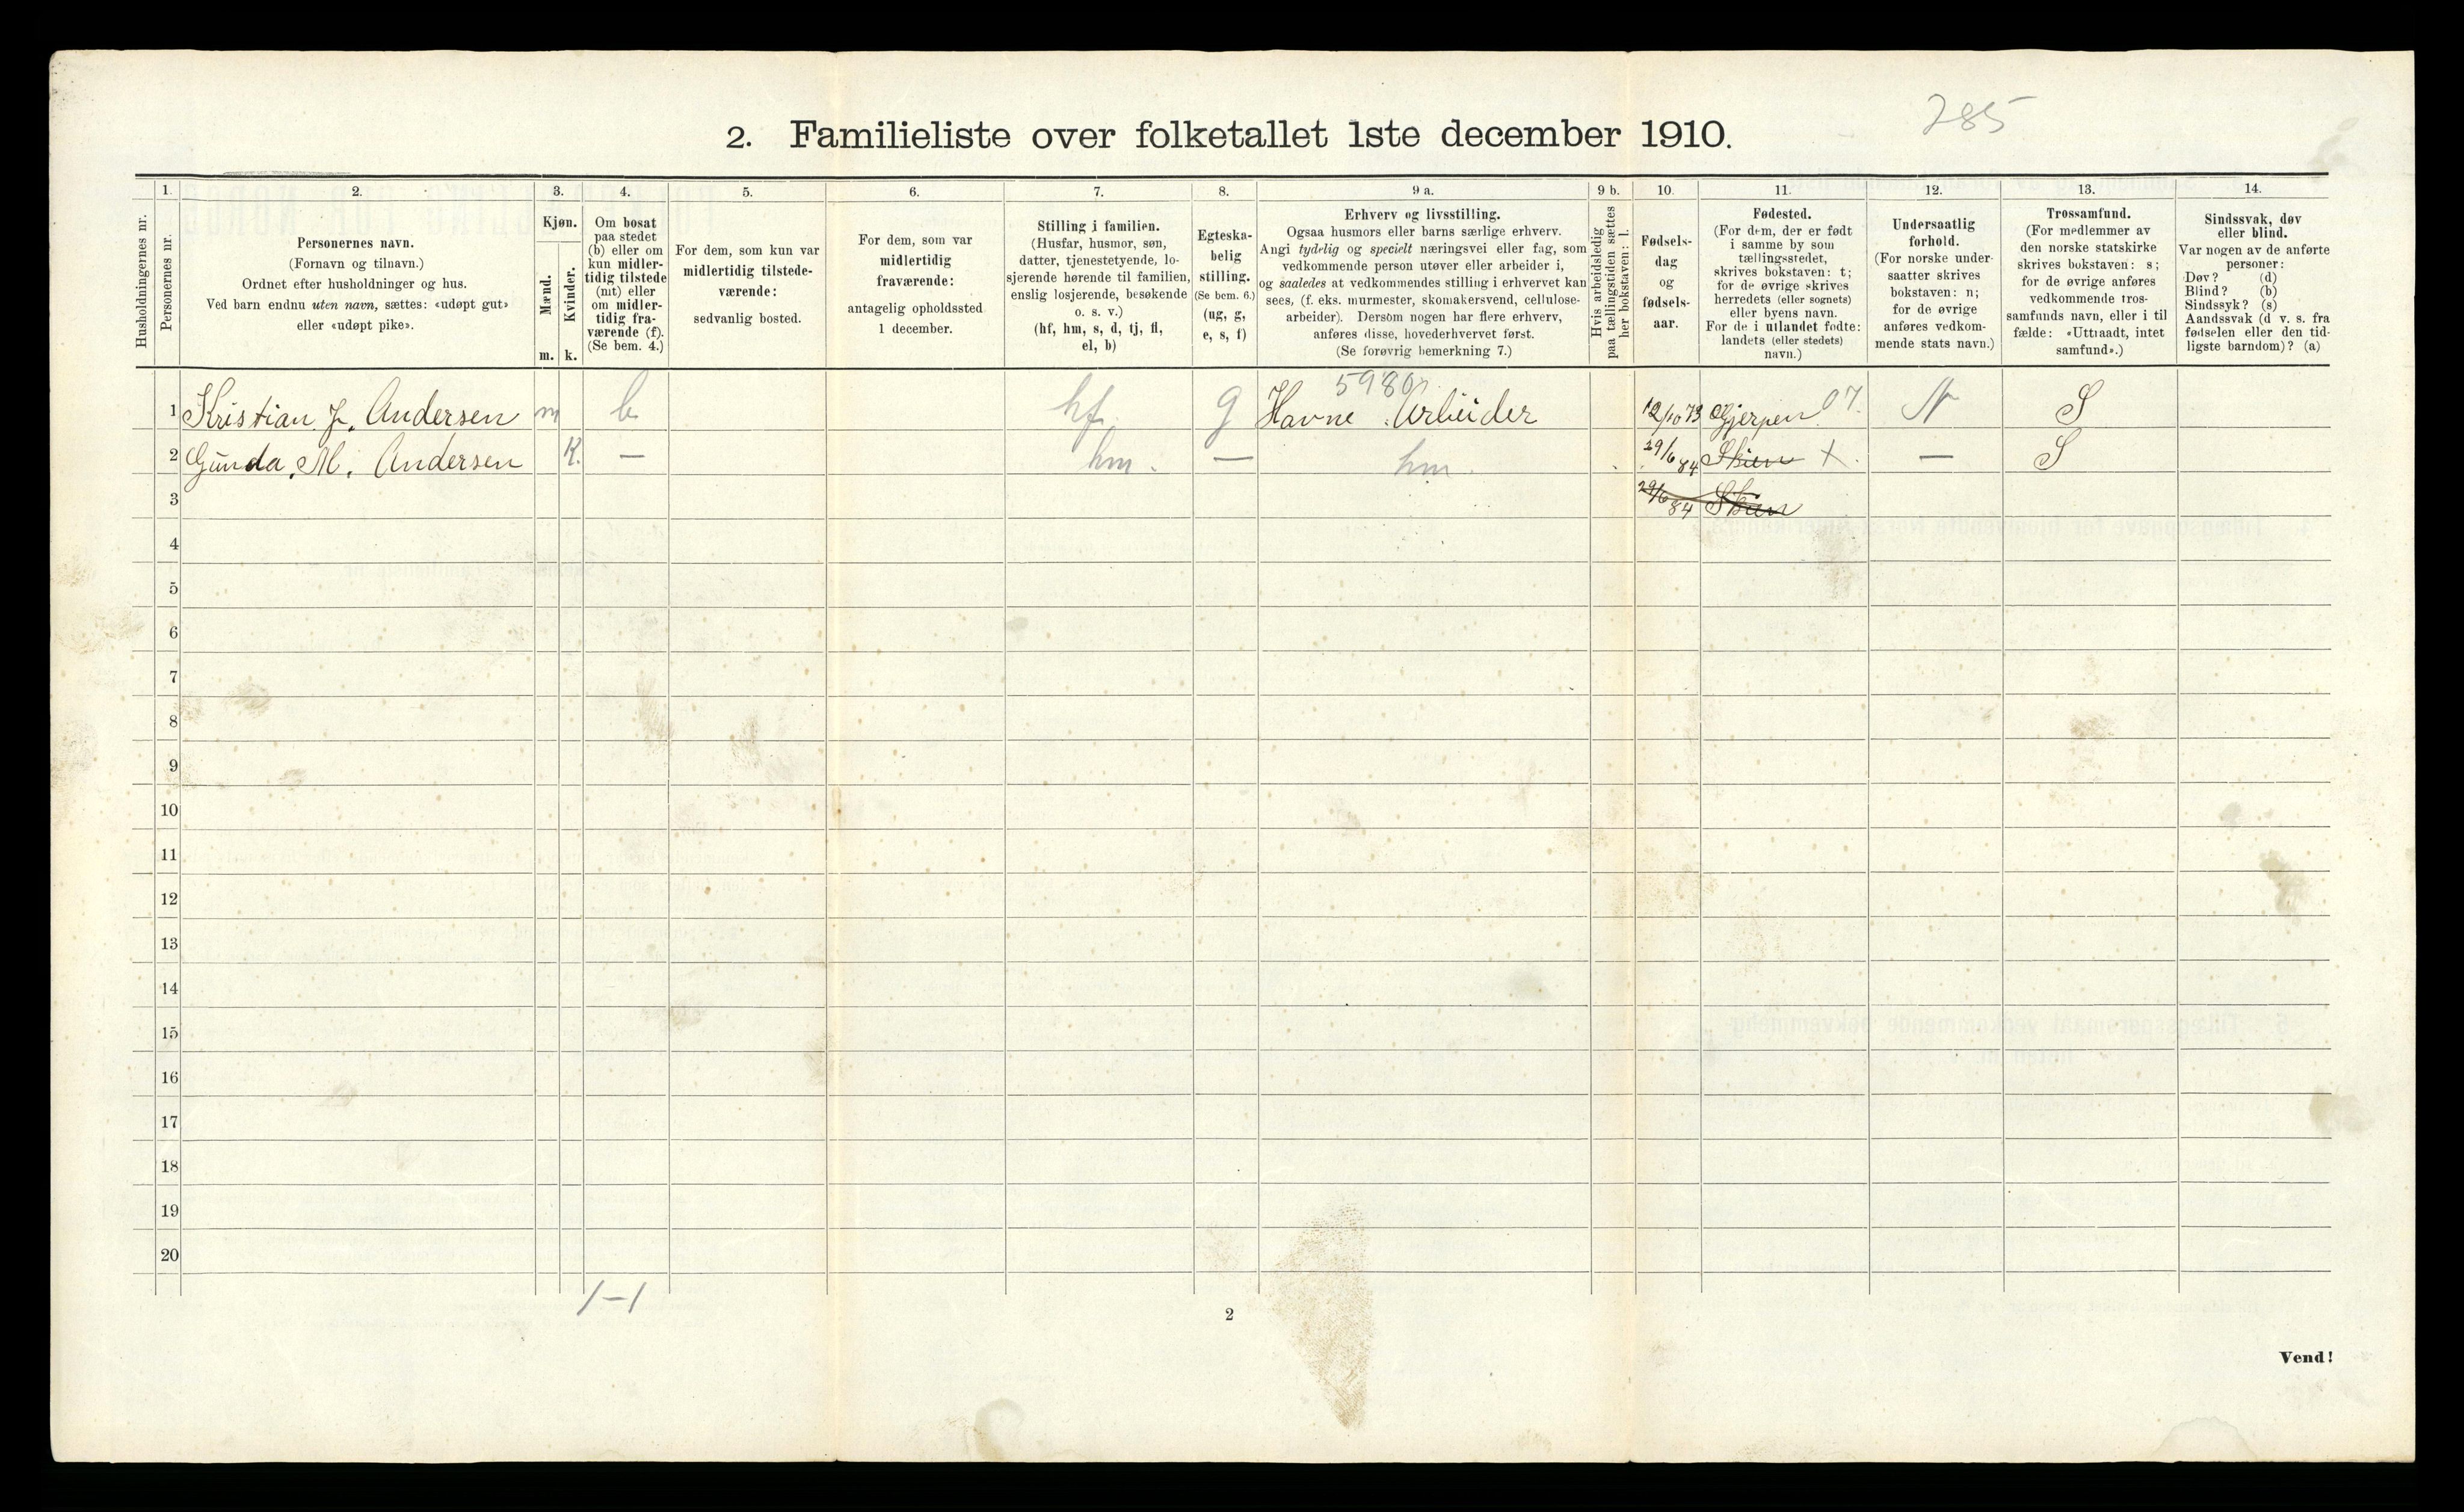 285
2. Familieliste over folketallet 1ste december 1910.
1. 2. 3. 4. 5. 6. 7. 8. 9 a. 9 b. 10. 11. 12. 13. 14.
Husholdningernes nr.
Personernes nr.
Personernes navn.
(Fornavn og tilnavn.)
Ordnet efter husholdninger og hus.
Ved barn endnu uten navn, sættes: «udøpt gut»
eller «udøpt pike».
Kjøn.
Mænd.
Kvinder.
m. k.
Om bosat
paa stedet
(b) eller om
kun midler-
tidig tilstede
(mt) eller
om midler-
tidig fra-
værende (f).
(Se bem. 4.)
For dem, som kun var
midlertidig tilstede-
værende:
sedvanlig bosted.
For dem, som var
midlertidig
fraværende:
antagelig opholdssted
1 december.
Stilling i familien.
(Husfar, husmor, søn,
datter, tjenestetyende, lo-
sjerende hørende til familien,
enslig losjerende, besøkende
o. s. v.)
(hf, hm, s, d, tj, fl,
el, b)
Egteska-
belig
stilling.
(Se bem. 6.)
(ug, g,
e, s, f)
Erhverv og livsstilling.
Ogsaa husmors eller barns særlige erhverv.
Angi tydelig og specielt næringsvei eller fag, som
vedkommende person utøver eller arbeider i,
og saaledes at vedkommendes stilling i erhvervet kan
sees, (f. eks. murmester, skomakersvend, cellulose-
arbeider). Dersom nogen har flere erhverv,
anføres disse, hovederhvervet først.
(Se forøvrig bemerkning 7.)
Hvis arbeidsledig
paa tællingstiden sættes
her bokstaven: l.
Fødsels-
dag
og
fødsels-
aar.
Fødested.
(For dem, der er født
i samme by som
tællingsstedet,
skrives bokstaven: t;
for de øvrige skrives
herredets (eller sognets)
eller byens navn.
For de i utlandet fødte:
landets (eller stedets)
navn.)
Undersaatlig
forhold.
(For norske under-
saatter skrives
bokstaven: n;
for de øvrige
anføres vedkom-
mende stats navn.)
Trossamfund.
(For medlemmer av
den norske statskirke
skrives bokstaven: s;
for de øvrige anføres
vedkommende tros-
samfunds navn, eller i til
fælde: «Uttraadt, intet
samfund».)
Sindssvak, døv
eller blind.
Var nogen av de anførte
personer:
Døv? (d)
Blind? (b)
Sindssyk? (s)
Aandssvak (d v. s. fra
fødselen eller den tid-
ligste barndom)? (a)
1 Kristian J. Andersen m b hf. g Havne Arbeider 12/10 73 Gjerpen 07. N S
2 Gunda. M. Andersen K. — hm. — hm. 29/6 84 Skien X. — S
3 29/6 84 Skien
4
5
6
7
8
9
10
11
12
13
14
15
16
17
18
19
20
1-1
2
Vend!